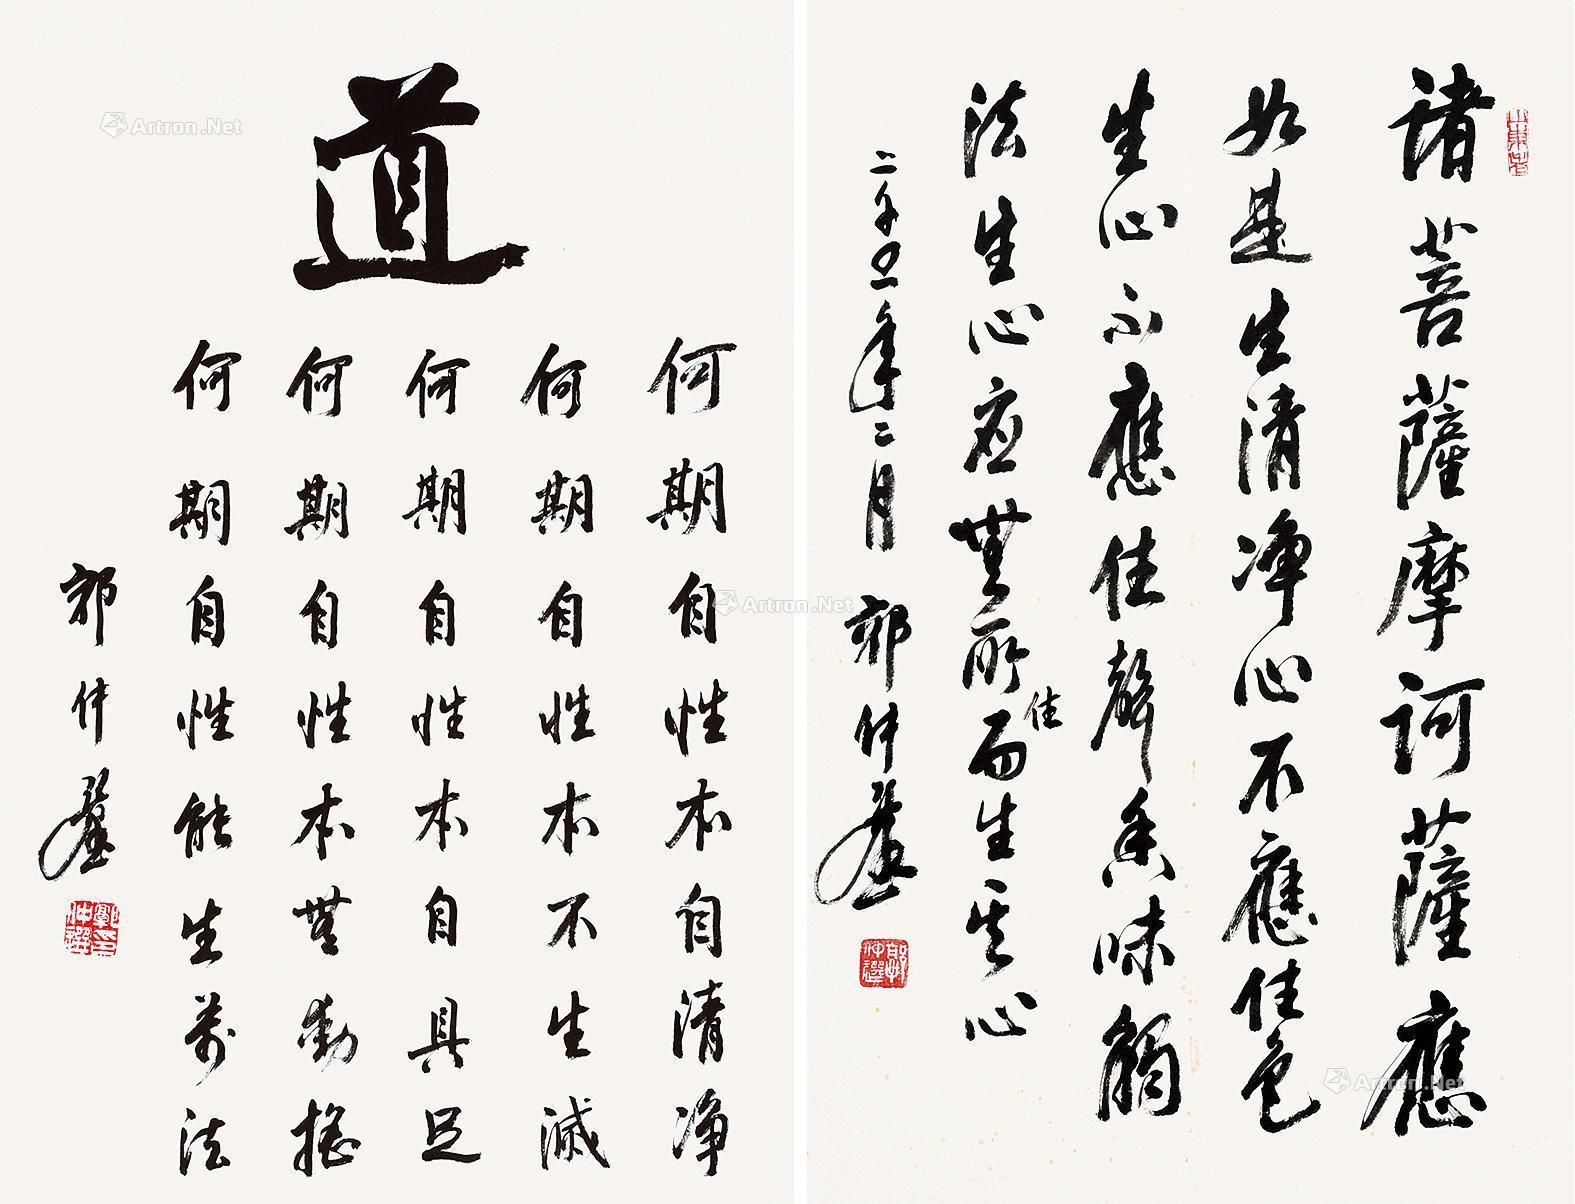 諸菩薩摩訶薩應
如是生清净心不應住色
生心不應住聲香味觸
法生心应無所住而生其心
年二月 郭仲選
郭仲選
道
何期自性本自清净
何期自性本不生滅
何期自性本自具足
何期自性本無動搖
何期自性能生萬法
郭仲選
郭仲選印
Artron.Net
Artron.Net
Artron.Net